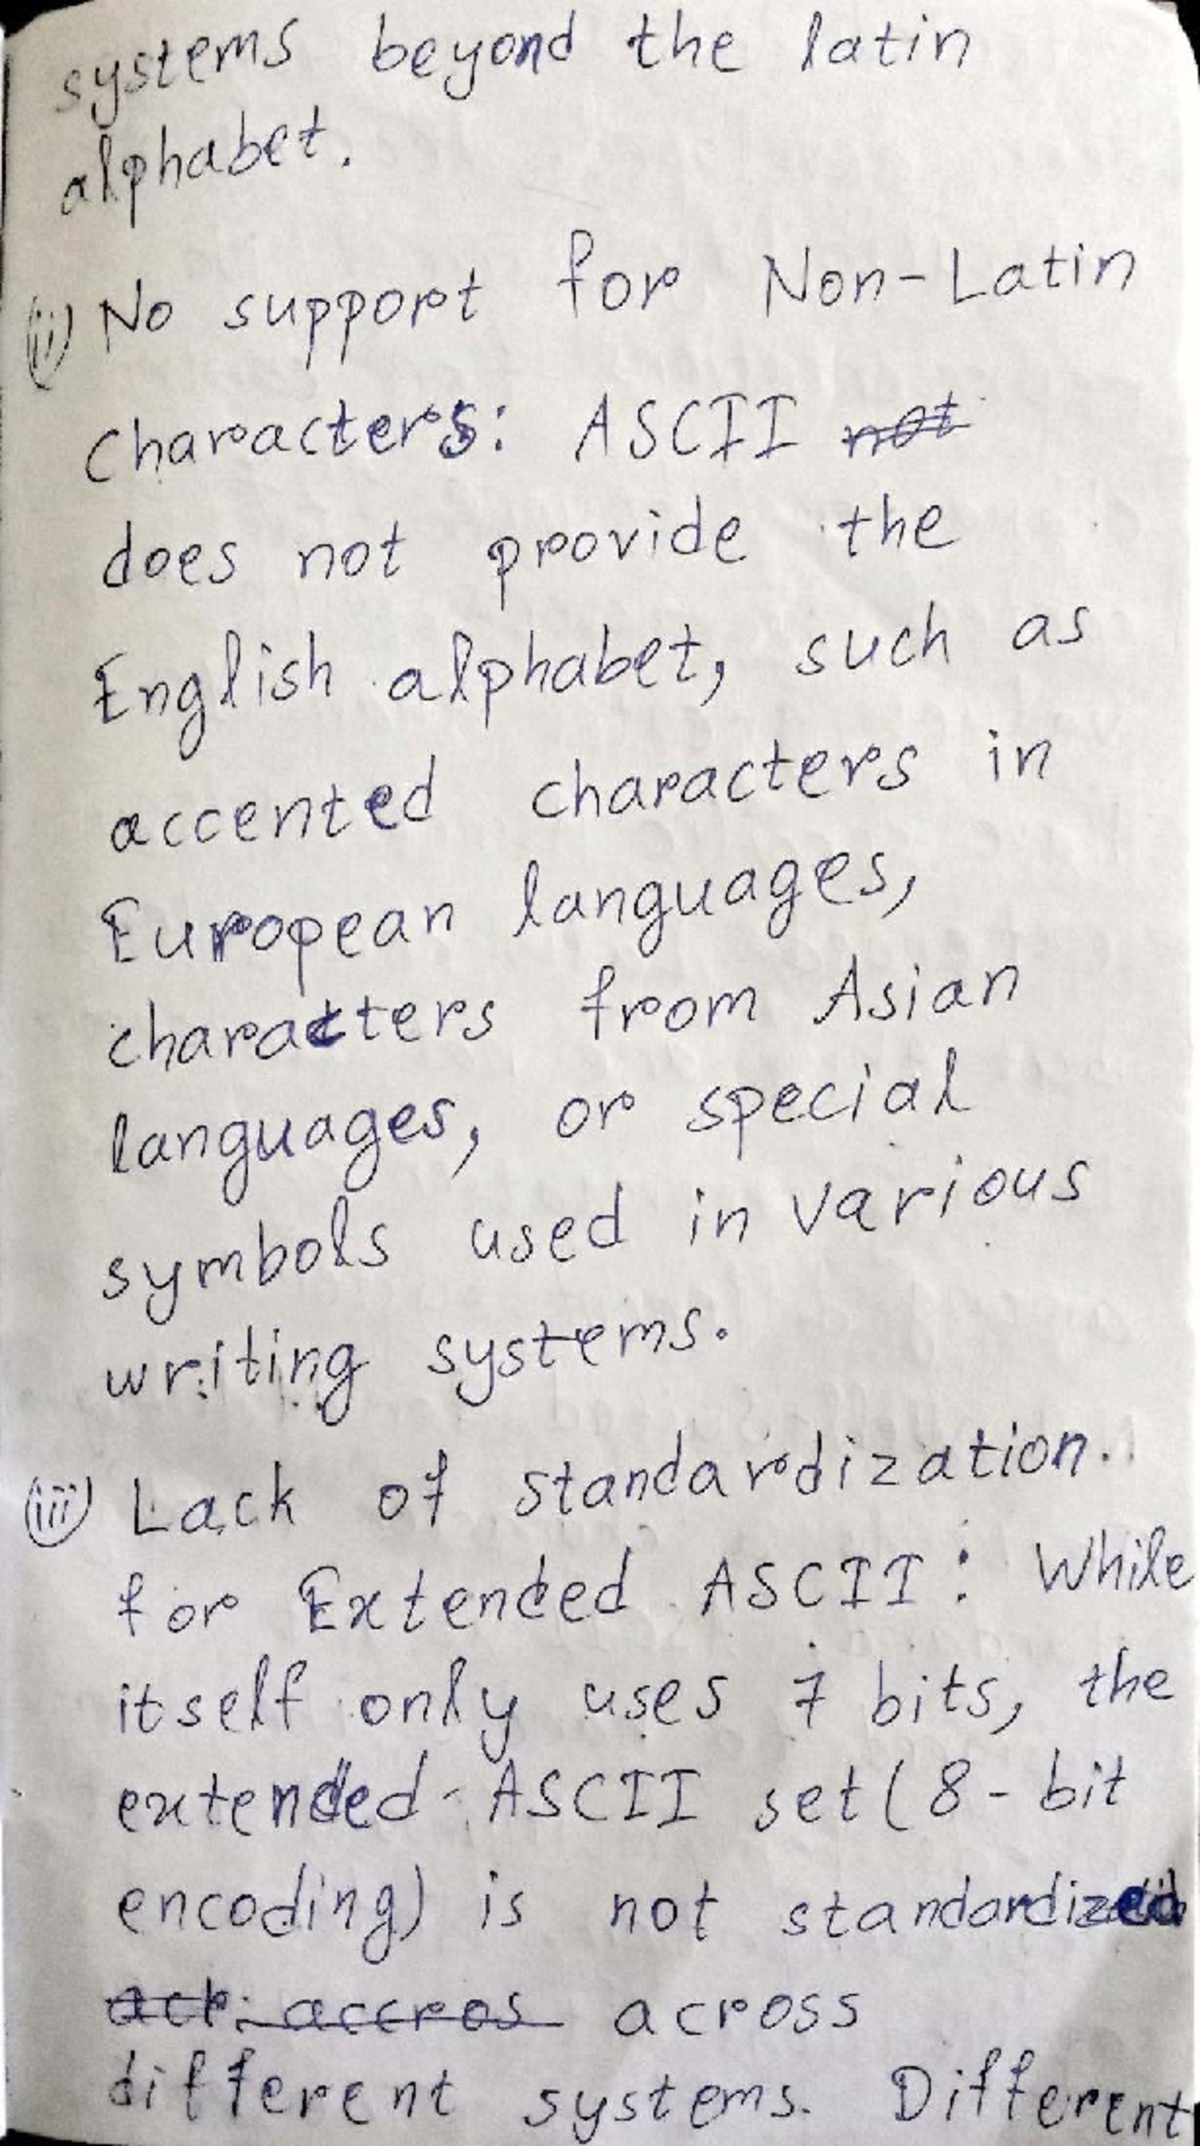 systems beyond the latin
alphabet.
(ii) No support for Non-Latin
characters: ASCII not
does not provide the
English alphabet, such as
accented characters in
European languages,
characters from Asian
languages, or special
symbols used in various
writing systems.
(iii) Lack of standardization.
for Extended ASCII: While
itself only uses 7 bits, the
extended ASCII set (8-bit
encoding) is not standardized
accros across
different systems. Different